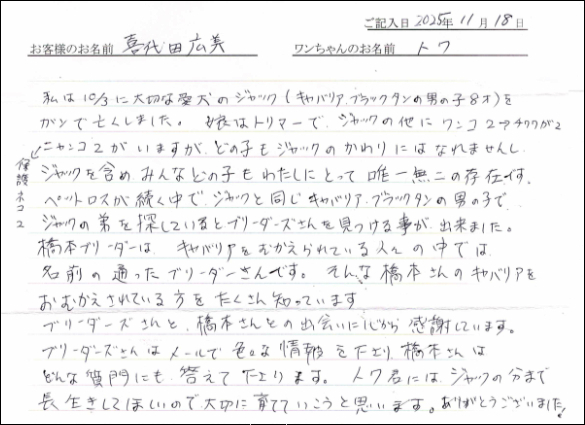 ご記入日 2025年 11月 18日
お客様のお名前 喜代田広美 ワンちゃんのお名前 トワ
私は10/3に大切な愛犬のジャック(キャバリア.ブラックタンの男の子8才)を
ガンで亡くしました。娘はトリマーで、ジャックの他にワンコ2→チワワが2
ニャンコ2がいますが、どの子もジャックのかわりにはなれませんし、
保護ネコ2
ジャックを含めみんなどの子もわたしにとって唯一無二の存在です。
ペットロスが続く中で、ジャックと同じキャバリア.ブラックタンの男の子で、
ジャックの弟を探しているとブリーダーズさんを見つける事が出来ました。
橋本ブリーダーは、キャバリアをむかえられている人々の中では
名前の通ったブリーダーさんです。そんな橋本さんのキャバリアを
おむかえされている方をたくさん知っています
ブリーダーズさんと、橋本さんとの出会いに心から感謝しています。
ブリーダーズさんはメールで色々な情報を下さり、橋本さんは
どんな質問にも、答えて下さります。トワ君には、ジャックの分まで
長生きしてほしいので大切に育てていこうと思います。ありがとうございました!